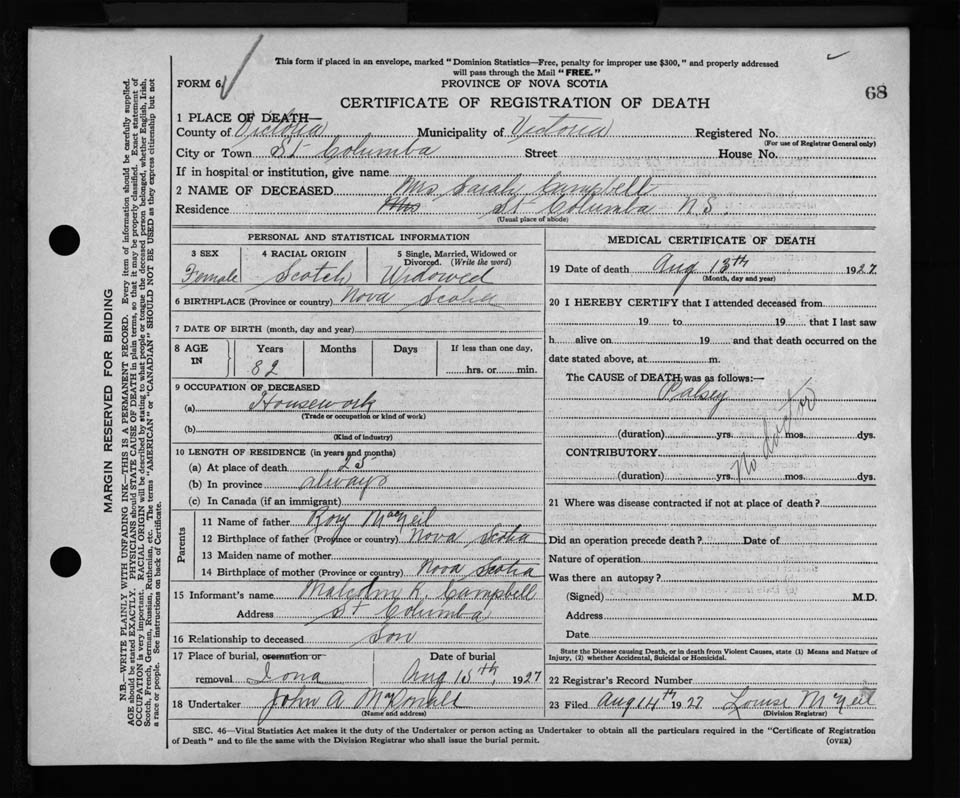 This form if placed in an envelope, marked "Dominion Statistics—Free, penalty for improper use $300," and properly addressed
will pass through the Mail "FREE."
FORM 6.
PROVINCE OF NOVA SCOTIA
68
CERTIFICATE OF REGISTRATION OF DEATH
1 PLACE OF DEATH—
County of Victoria Municipality of Victoria Registered No.
(For use of Registrar General only)
City or Town St Columba Street House No.
If in hospital or institution, give name
2 NAME OF DECEASED Mrs Sarah Campbell
Residence Mrs St Columba N.S.
(Usual place of abode)
PERSONAL AND STATISTICAL INFORMATION
3 SEX 4 RACIAL ORIGIN 5 Single, Married, Widowed or
Divorced. (Write the word)
Female Scotch Widowed
6 BIRTHPLACE (Province or country) Nova Scotia
7 DATE OF BIRTH (month, day and year)
8 AGE IN Years Months Days If less than one day,
82 hrs. or min.
9 OCCUPATION OF DECEASED
(a) Housework
(Trade or occupation or kind of work)
(b)
(Kind of industry)
10 LENGTH OF RESIDENCE (in years and months)
(a) At place of death 25
(b) In province always
(c) In Canada (if an immigrant)
Parents
11 Name of father Rory MacNeil
12 Birthplace of father (Province or country) Nova Scotia
13 Maiden name of mother
14 Birthplace of mother (Province or country) Nova Scotia
15 Informant's name Malcolm K. Campbell
Address St Columba
16 Relationship to deceased Son
17 Place of burial, cremation or Date of burial
removal Iona Aug 15th, 1927
18 Undertaker John A McDonald
(Name and address)
MEDICAL CERTIFICATE OF DEATH
19 Date of death Aug 13th 1927
(Month, day and year)
20 I HEREBY CERTIFY that I attended deceased from
19 to 19 that I last saw
h alive on 19 and that death occurred on the
date stated above, at m.
The CAUSE of DEATH was as follows:—
Palsey
No doctor
(duration) yrs. mos. dys.
CONTRIBUTORY
(duration) yrs. mos. dys.
21 Where was disease contracted if not at place of death?
Did an operation precede death? Date of
Nature of operation
Was there an autopsy?
(Signed) M.D.
Address
Date
State the Disease causing Death, or in death from Violent Causes, state (1) Means and Nature of
Injury, (2) whether Accidental, Suicidal or Homicidal.
22 Registrar's Record Number
23 Filed Aug 14th 1927 Louise McNeil
(Division Registrar)
SEC. 46—Vital Statistics Act makes it the duty of the Undertaker or person acting as Undertaker to obtain all the particulars required in the "Certificate of Registration
of Death" and to file the same with the Division Registrar who shall issue the burial permit. (OVER)
MARGIN RESERVED FOR BINDING
N.B.—WRITE PLAINLY WITH UNFADING INK—THIS IS A PERMANENT RECORD. Every item of information should be carefully supplied.
AGE should be stated EXACTLY. PHYSICIANS should STATE CAUSE OF DEATH in plain terms, so that it may be properly classified. Exact statement of
OCCUPATION is very important. RACIAL ORIGIN will be described by stating to what people or tongue the deceased person belonged, whether English, Irish,
Scotch, French, German, Russian, Ruthenian, etc. The terms "AMERICAN" or "CANADIAN" SHOULD NOT BE USED as they express citizenship but not
a race or people. See instructions on back of Certificate.